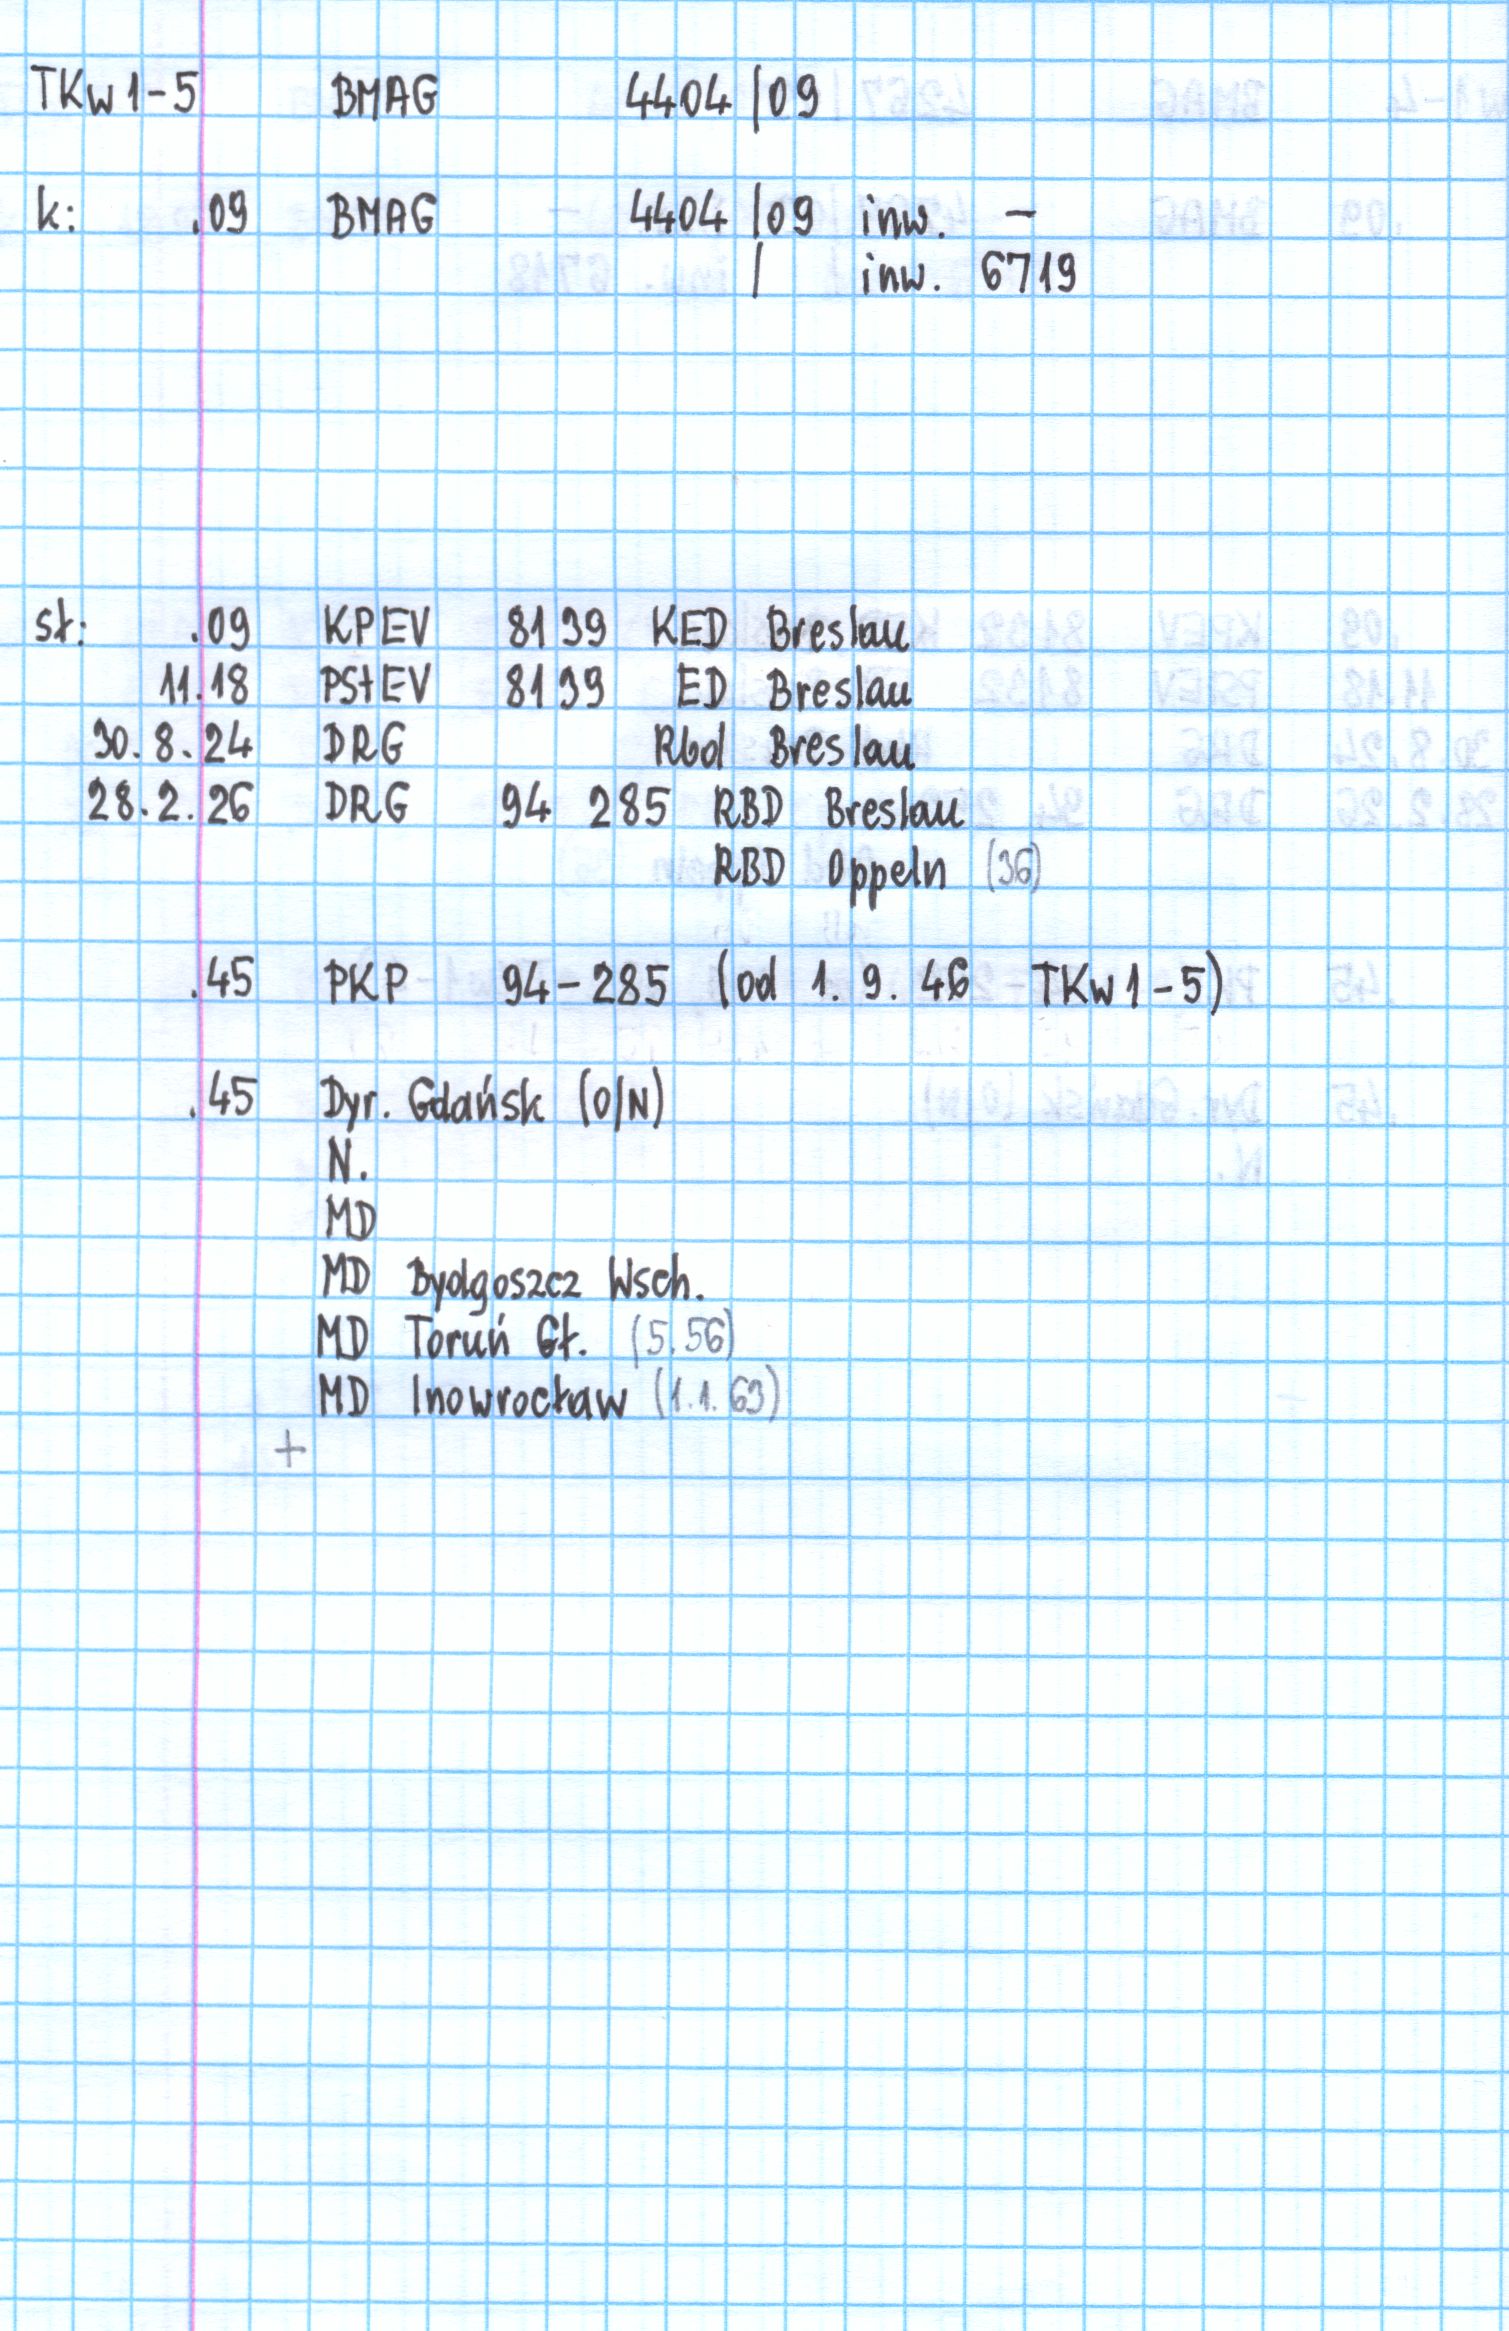 TKw1-5 BMAG 4404/09
k: .09 BMAG 4404/09 inw. -
/ inw. 6719
st: .09 KPEV 8139 KED Breslau
11.18 PStEV 8139 ED Breslau
30.8.24 DRG Rbd Breslau
28.2.26 DRG 94 285 RBD Breslau
RBD Oppeln (36)
.45 PKP 94-285 (od 1.9.46 TKw1-5)
.45 Dyr. Gdańsk (O/N)
N.
MD
MD Bydgoszcz Wsch.
MD Toruń Gł. (5.56)
MD Inowrocław (1.1.63)
+